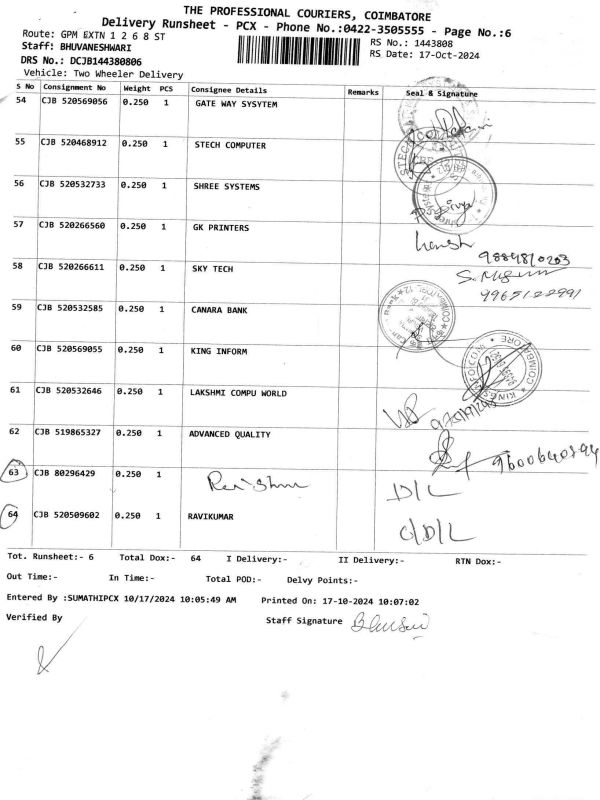 THE PROFESSIONAL COURIERS, COIMBATORE
Delivery Runsheet - PCX - Phone No.:0422-3505555 - Page No.:6
Route: GPM EXTN 1 2 6 8 ST
RS No.: 1443808
Staff: BHUVANESHWARI
RS Date: 17-Oct-2024
DRS No.: DCJB144380806
Vehicle: Two Wheeler Delivery
S No Consignment No Weight PCS Consignee Details Remarks Seal & Signature
54 CJB 520569056 0.250 1 GATE WAY SYSYTEM
55 CJB 520468912 0.250 1 STECH COMPUTER
56 CJB 520532733 0.250 1 SHREE SYSTEMS
57 CJB 520266560 0.250 1 GK PRINTERS
58 CJB 520266611 0.250 1 SKY TECH
59 CJB 520532585 0.250 1 CANARA BANK
60 CJB 520569055 0.250 1 KING INFORM
61 CJB 520532646 0.250 1 LAKSHMI COMPU WORLD
62 CJB 519865327 0.250 1 ADVANCED QUALITY
63 CJB 80296429 0.250 1 D/L
64 CJB 520509602 0.250 1 RAVIKUMAR O/D/L
Tot. Runsheet:- 6 Total Dox:- 64 I Delivery:- II Delivery:- RTN Dox:-
Out Time:- In Time:- Total POD:- Delvy Points:-
Entered By :SUMATHIPCX 10/17/2024 10:05:49 AM Printed On: 17-10-2024 10:07:02
Verified By Staff Signature